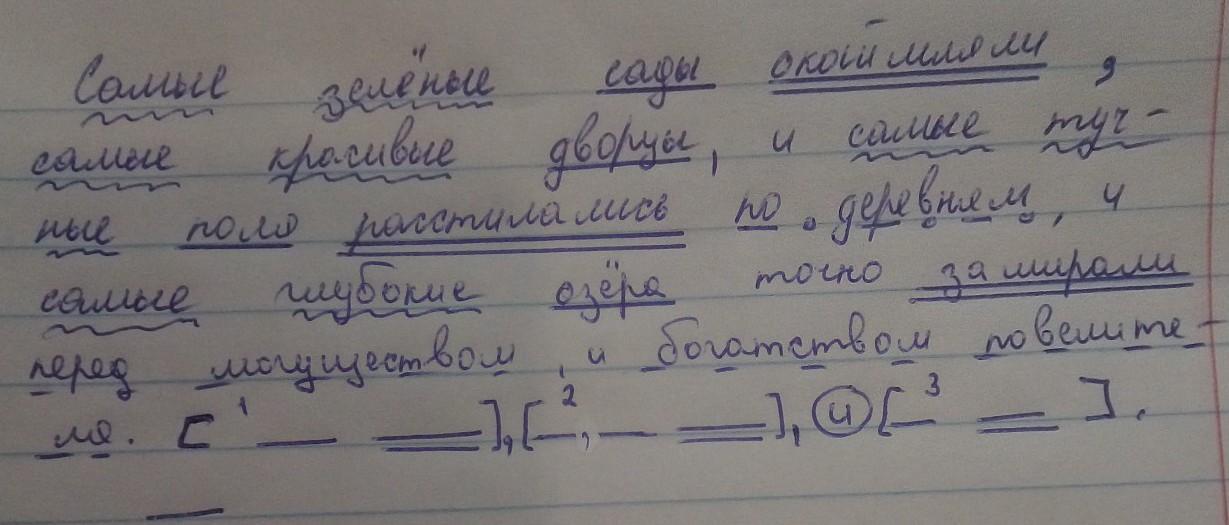 Самые зелёные сады окоймляли,
самые красивые дворцы, и самые туч-
ные поля расстилались по деревням, и
самые глубокие озёра точно замирали
перед могуществом, и богатством повелите-
ля. [1 ], [2 , ], и [3 ].